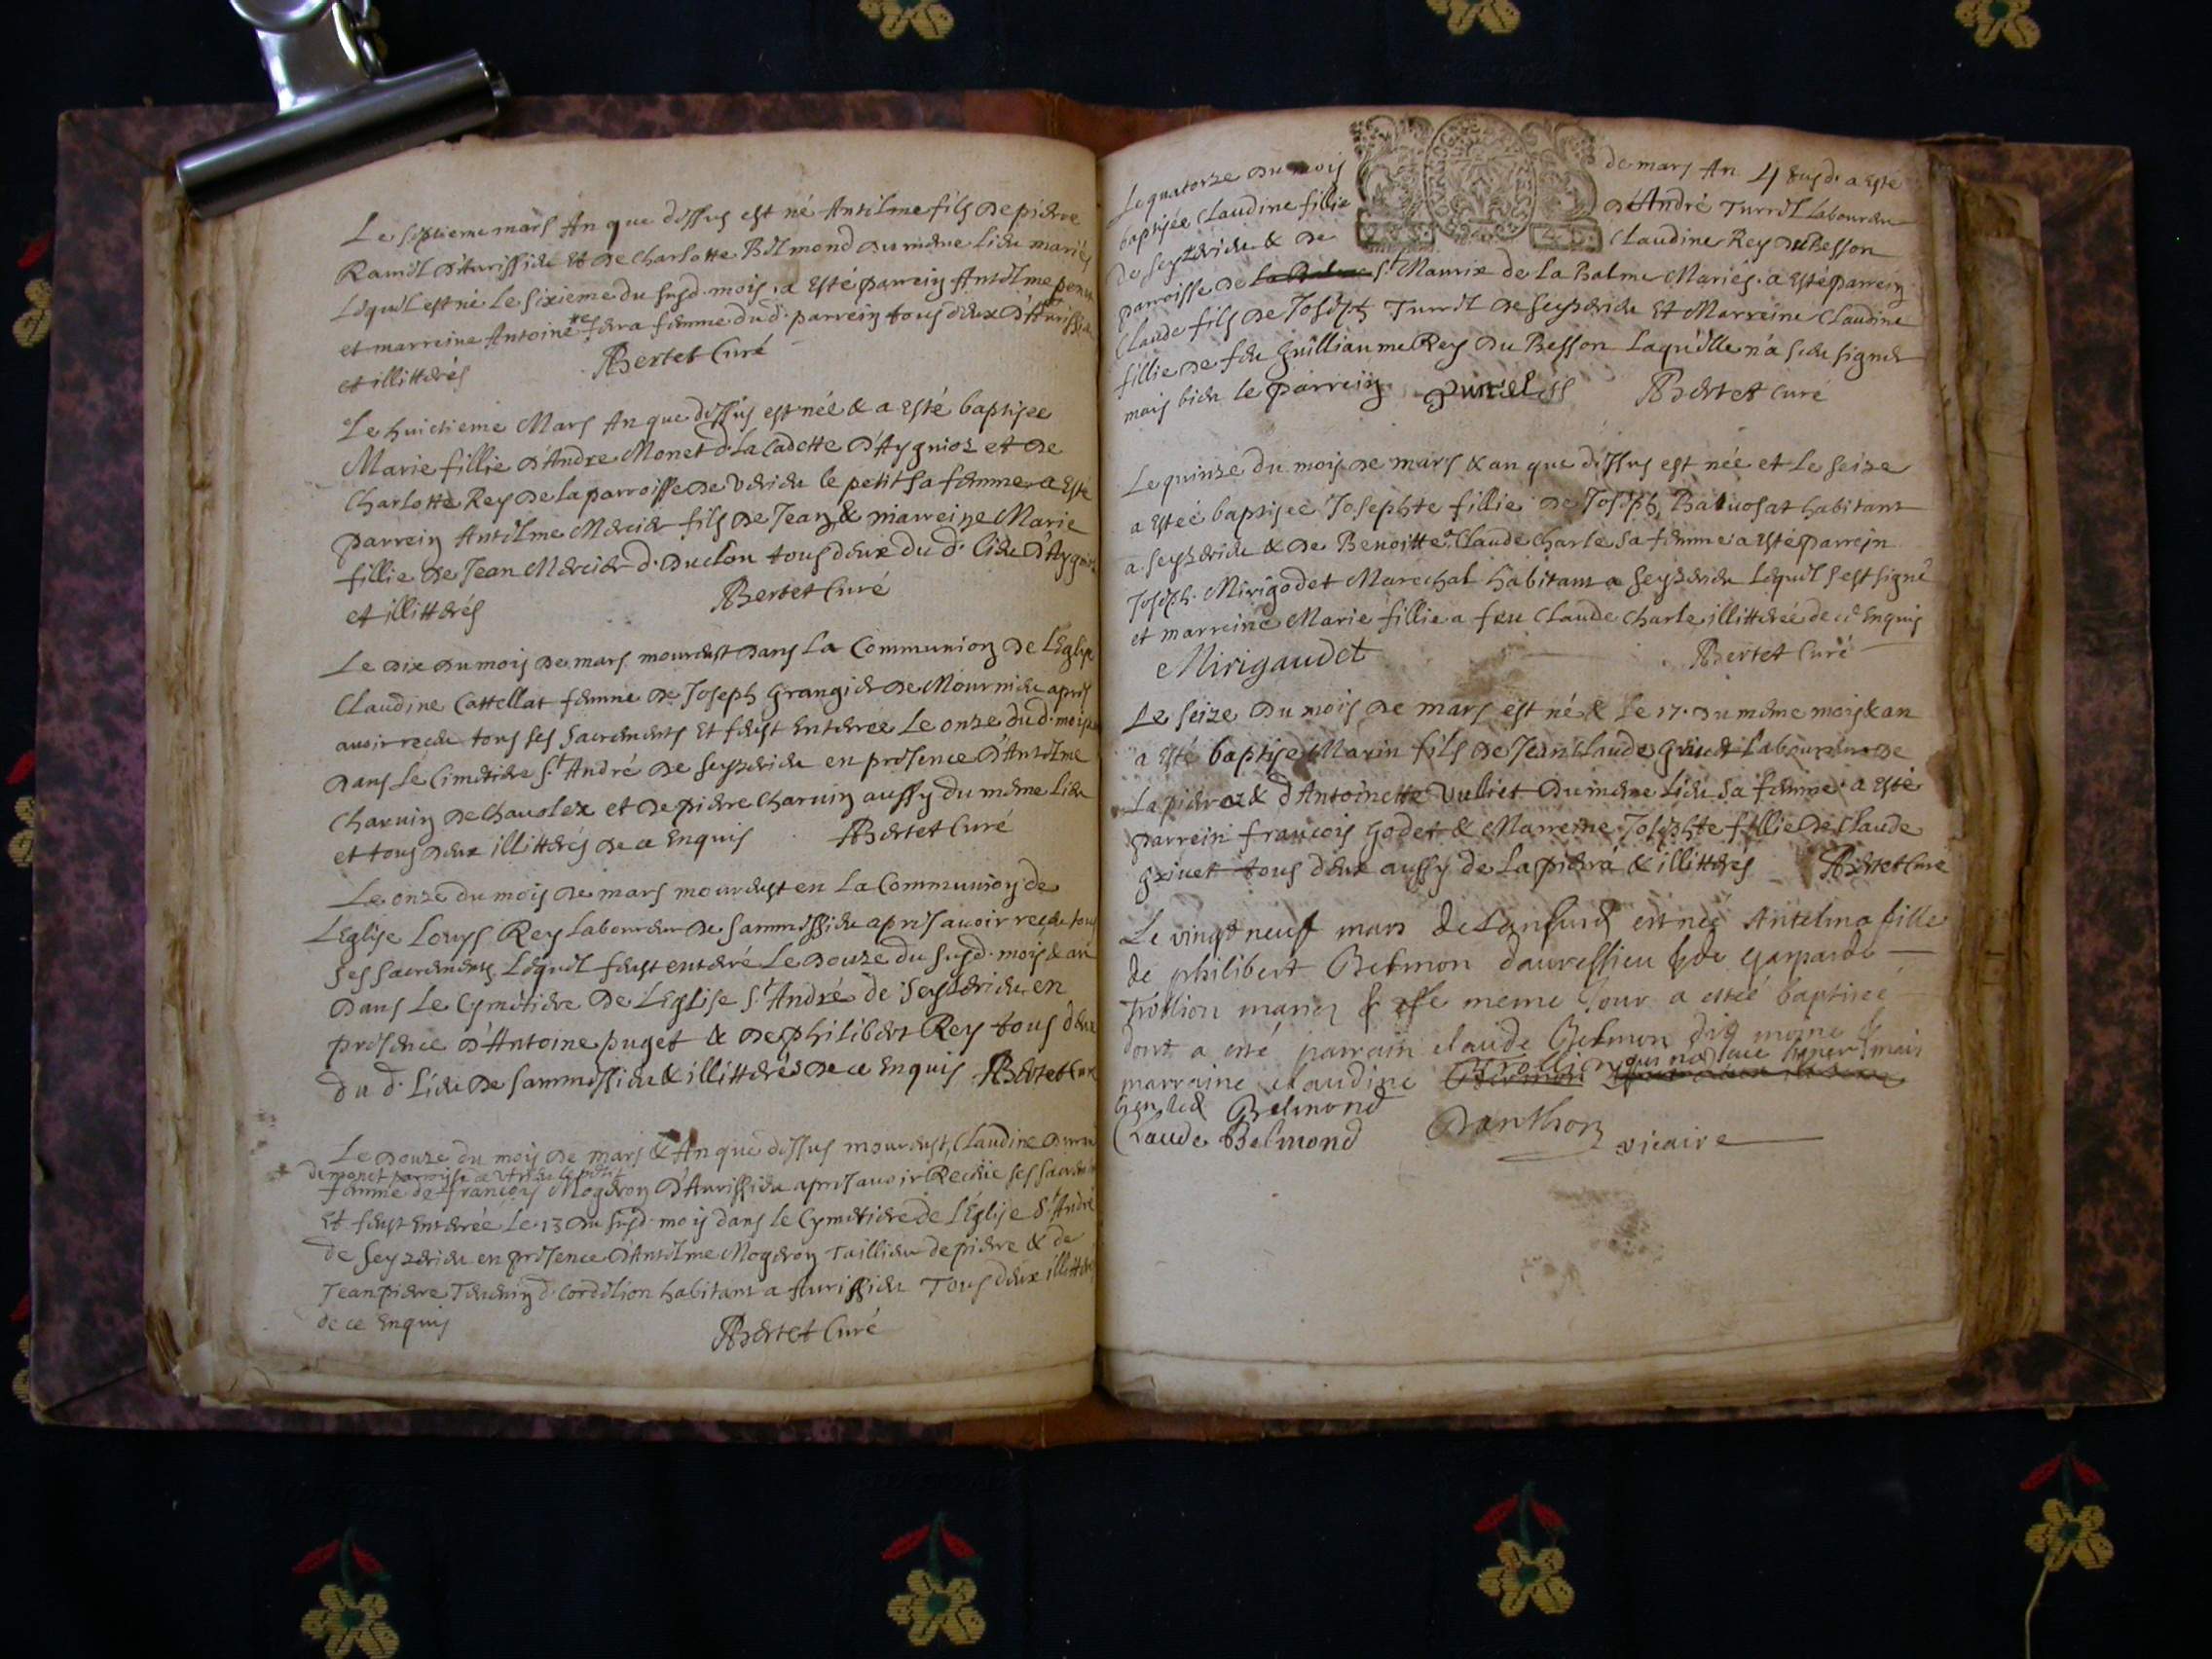 Le septieme mars An que dessus est né Antelme fils de pierre
Ramel d'Aurissieu et de Charlotte Belmond du meme lieu mariés
Lequel est né le sixieme du susd. mois, a esté parrein Antelme
et marreine Antoine femme dud. parrein tous deux d'Aurissieu
et illitterés Bertet Curé
Le huictieme Mars An que dessus est née & a esté baptisee
Marie fillie d'Andre Monet d. La Cadette d'Aygnioz et de
Charlotte Rey de la parroisse de Verieu le petit sa femme a esté
parrein Antelme Mercier fils de Jean & marreine Marie
fillie de Jean Mercier d. Duclou tous deux du d. lieu d'Aygnioz
et illitterés Bertet Curé
Le dix du mois de mars mourust dans La Communion de l'Eglise
Claudine Cattellat femme de Joseph Grangier de Mournieu apres
avoir receu tous ses Sacrements et feust Enterée Le onze du d. mois
dans Le Cimetiere St. André de Seyzerieu en presence d'Antelme
Charuin de Chavolex et de pierre Charuin aussy du meme lieu
et tous deux illitterés de ce Enquis Bertet Curé
Le onze du mois de mars mourust en La Communion de
L'Eglise Louys Rey Laboureur de Sammissieu apres avoir receu tous
ses sacrements Lequel feust enteré Le douze du susd. mois & an
dans Le Cymetiere de L'Eglise St. André de Seyzerieu en
presence d'Antoine puget & de philibert Rey tous deux
du d. Lieu de Sammissieu & illitterés de ce Enquis Bertet Curé
Le douze du mois de mars & An que dessus mourust, Claudine
de monet parroisse de Verieu le petit
femme de françois Mogeron d'Aurissieu apres avoir Receue ses sacrements
Et feust Enterée Le 13 du susd. mois dans le Cymetiere de l'Eglise St. André
de Seyzerieu en presence d'Antelme Mogeron Taillieu de pierre & de
Jean pierre d. Cordelion habitant a Aurissieu Tous deux illitterés
de ce Enquis Bertet Curé
Le quatorze du mois de mars An susd. a esté
baptisée Claudine fillie d'André Turrel Laboureur
de Seyzerieu & de Claudine Rey du Besson
parroisse de St. Maurix de la Balme Mariés. a esté parrein
Claude fils de Joseph Turrel de Seyzerieu Et Marreine Claudine
fillie de feu Guilliaume Rey du Besson Laquelle n'a sceu signer
mais bien le parrein Bertet Curé
Le quinze du mois de mars & an que dessus est née et Le seize
a esteé baptiseé Josephte fillie de Joseph habitant
a Seyzerieu & de Benoitte Claude Charle sa femme a esté parrein
Joseph Mirigodet Marechal habitant a Seyzerieu lequel s'est signé
et marreine Marie fillie a feu Claude Charle illitterée de ce Enquis
Mirigaudet Bertet Curé
Le seize du mois de mars est né & le 17. du meme mois & an
a esté baptise Marin fils de Jean Claude Laboureur de
Lapierra & d'Antoinette Vulliet du meme Lieu sa femme. a esté
parrein francois Godet & Marreine Josephte fillie de Claude
tous deux aussy de Lapierra & illitterés Bertet Curé
Le vingt neuf mars de Lan susd est née Antelma fille
de philibert Belmon dauressieu & de gasparde
Trollion mariez & le meme jour a esteé baptiseé
dont a esté parrain claude Belmon dit moine &
marraine claudine Trollion qui na sceu signer mais
bien led Belmond
Claude Belmond Danthon vicaire